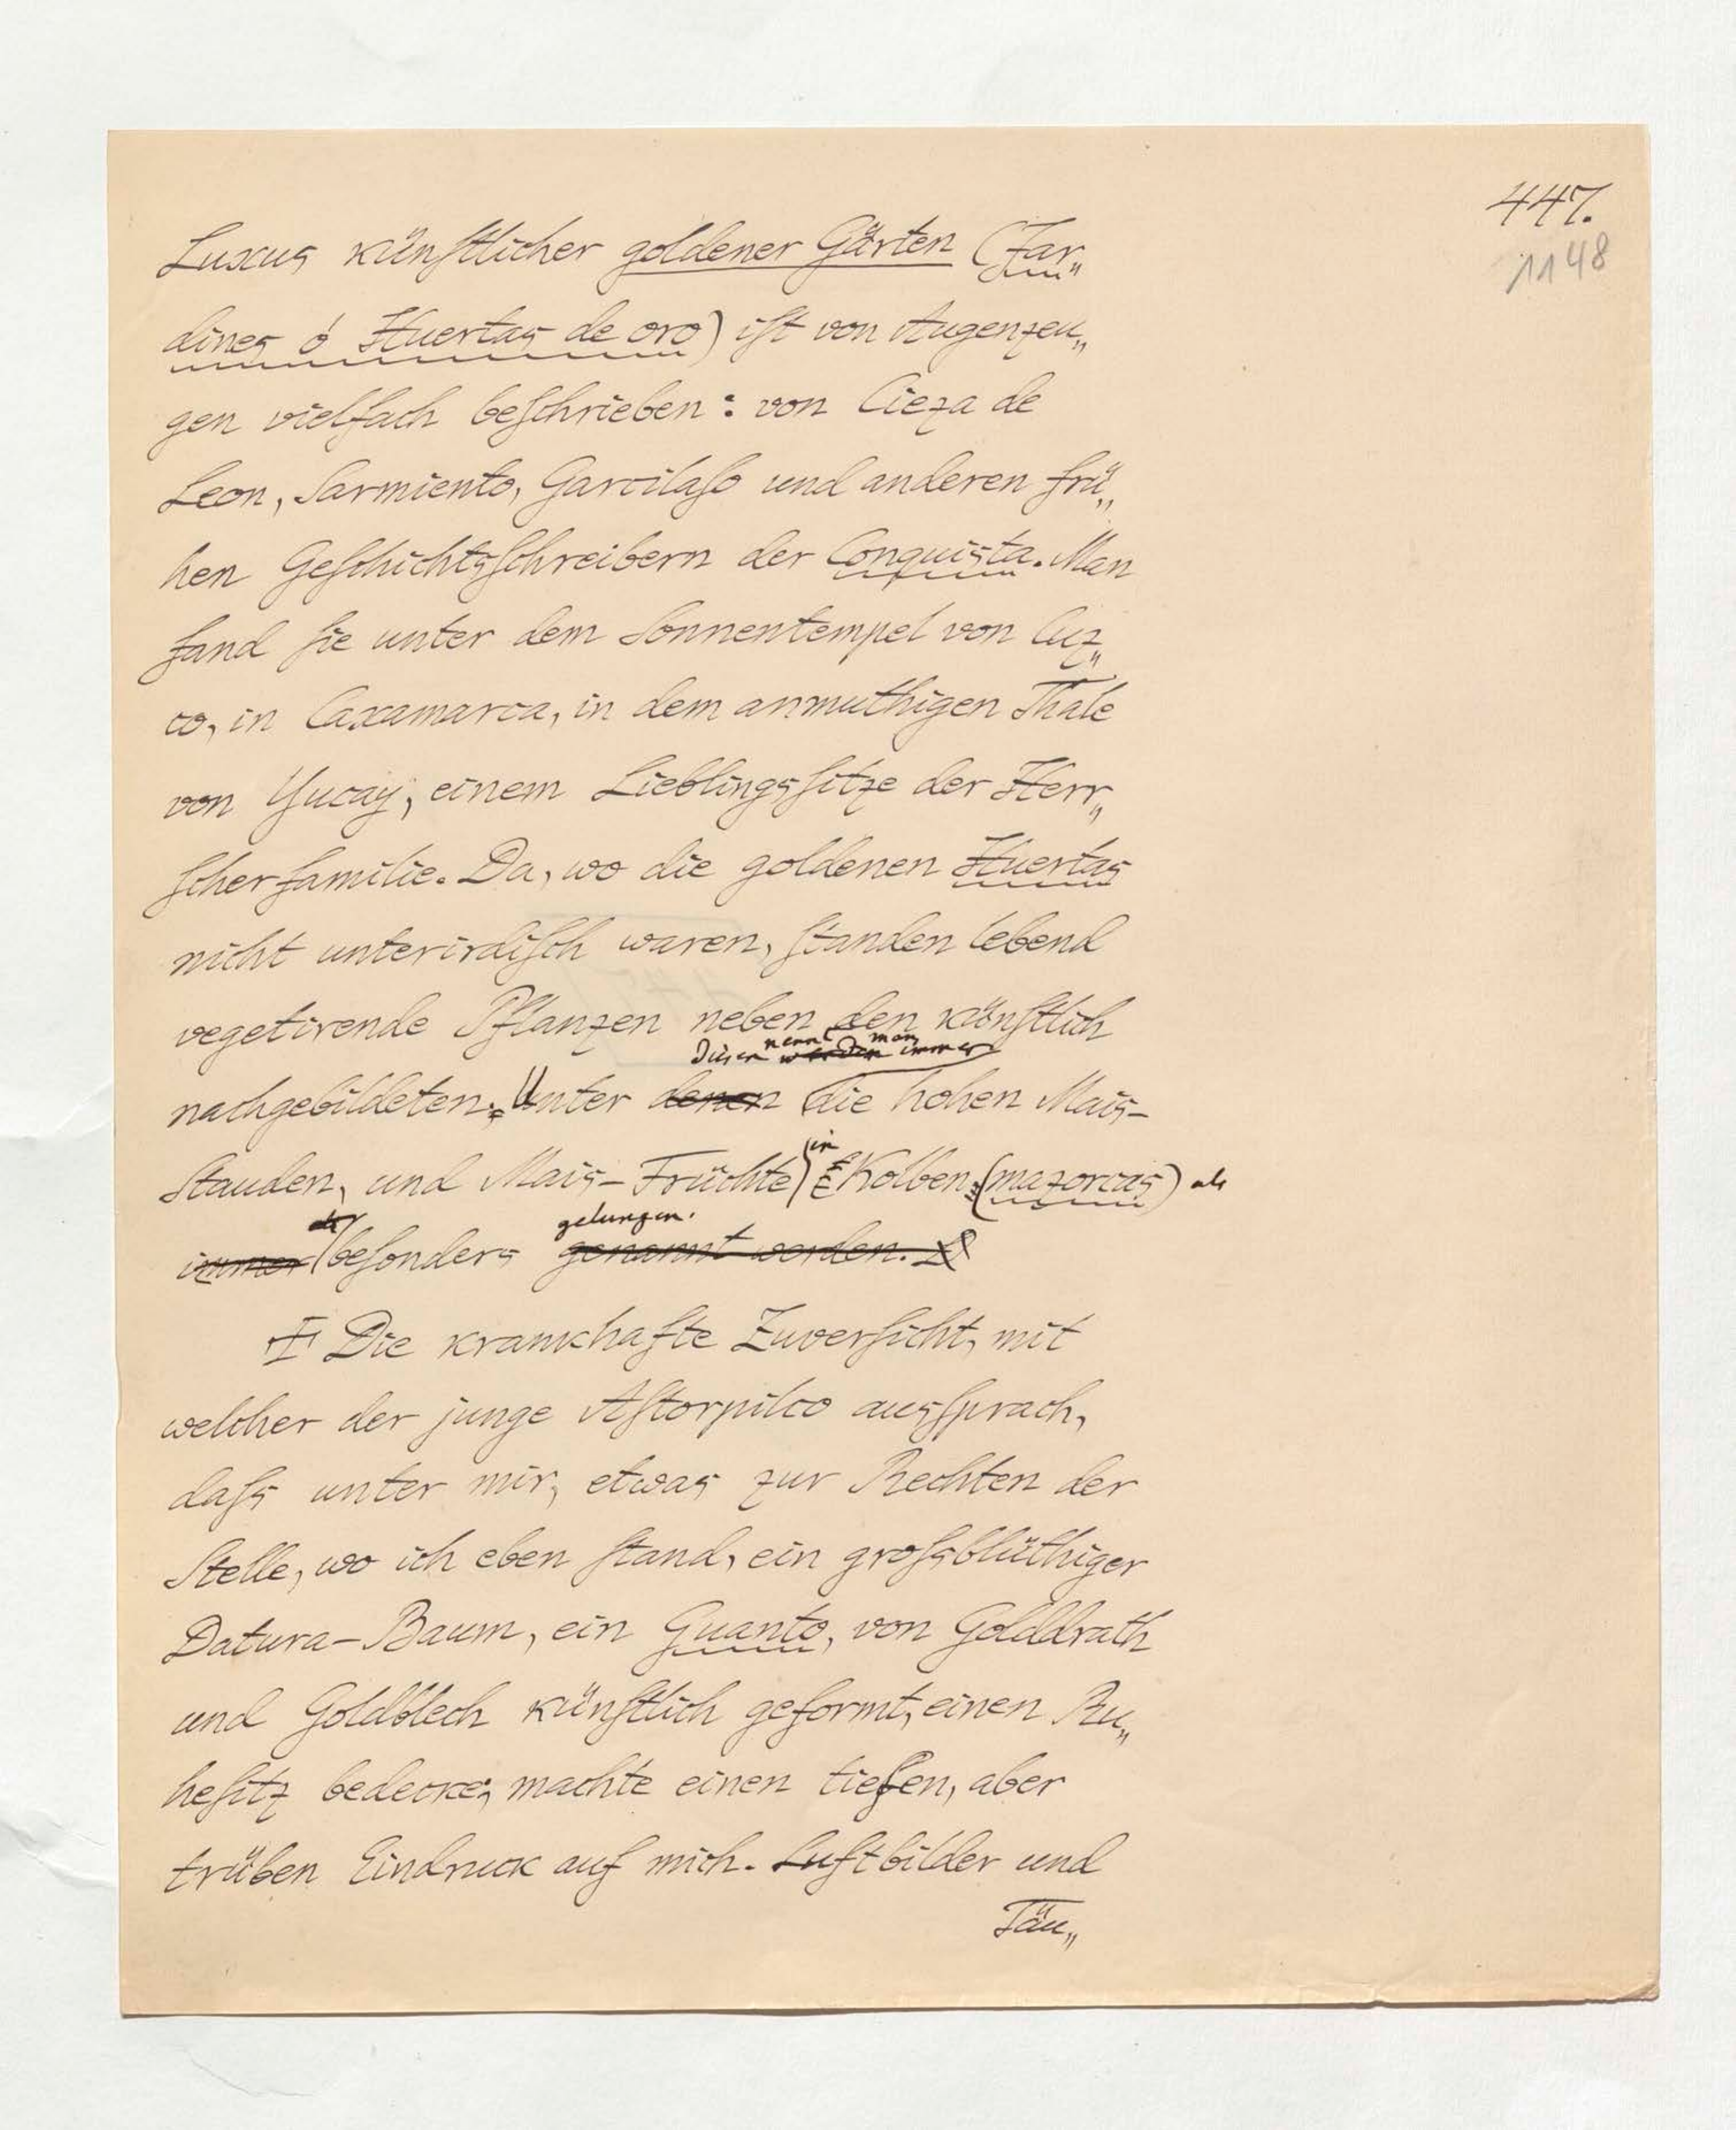 447.
1148
Luxus künstlicher goldener Gärten (Jar„
dines ó Huertas de oro) ist von Augenzeu„
gen vielfach beschrieben: von Cieza de
Leon, Sarmiento, Garcilaso und anderen frü„
hen Geschichtsschreibern der Conquista. Man
fand sie unter dem Sonnentempel von Cuz„
co, in Caxamarca, in dem anmuthigen Thale
von Yucay, einem Lieblingssitze der Herr„
scherfamilie. Da, wo die goldenen Huertas
nicht unterirdisch waren, standen lebend
vegetirende Pflanzen neben den künstlich
nennt man
Diesen werden immer
nachgebildeten; Unter denen die hohen Mais-
in
Stauden, und Mais-Früchte Kolben (mazorcas) als
gelungen.
immer besonders genannt werden.
Die krankhafte Zuversicht, mit
welcher der junge Astorpilco aussprach,
dass unter mir, etwas zur Rechten der
Stelle, wo ich eben stand, ein grossblüthiger
Datura-Baum, ein Guanto, von Golddrath
und Goldblech künstlich geformt, einen Ru„
hesitz bedecke; machte einen tiefen, aber
trüben Eindruck auf mich. Luftbilder und
Täu„